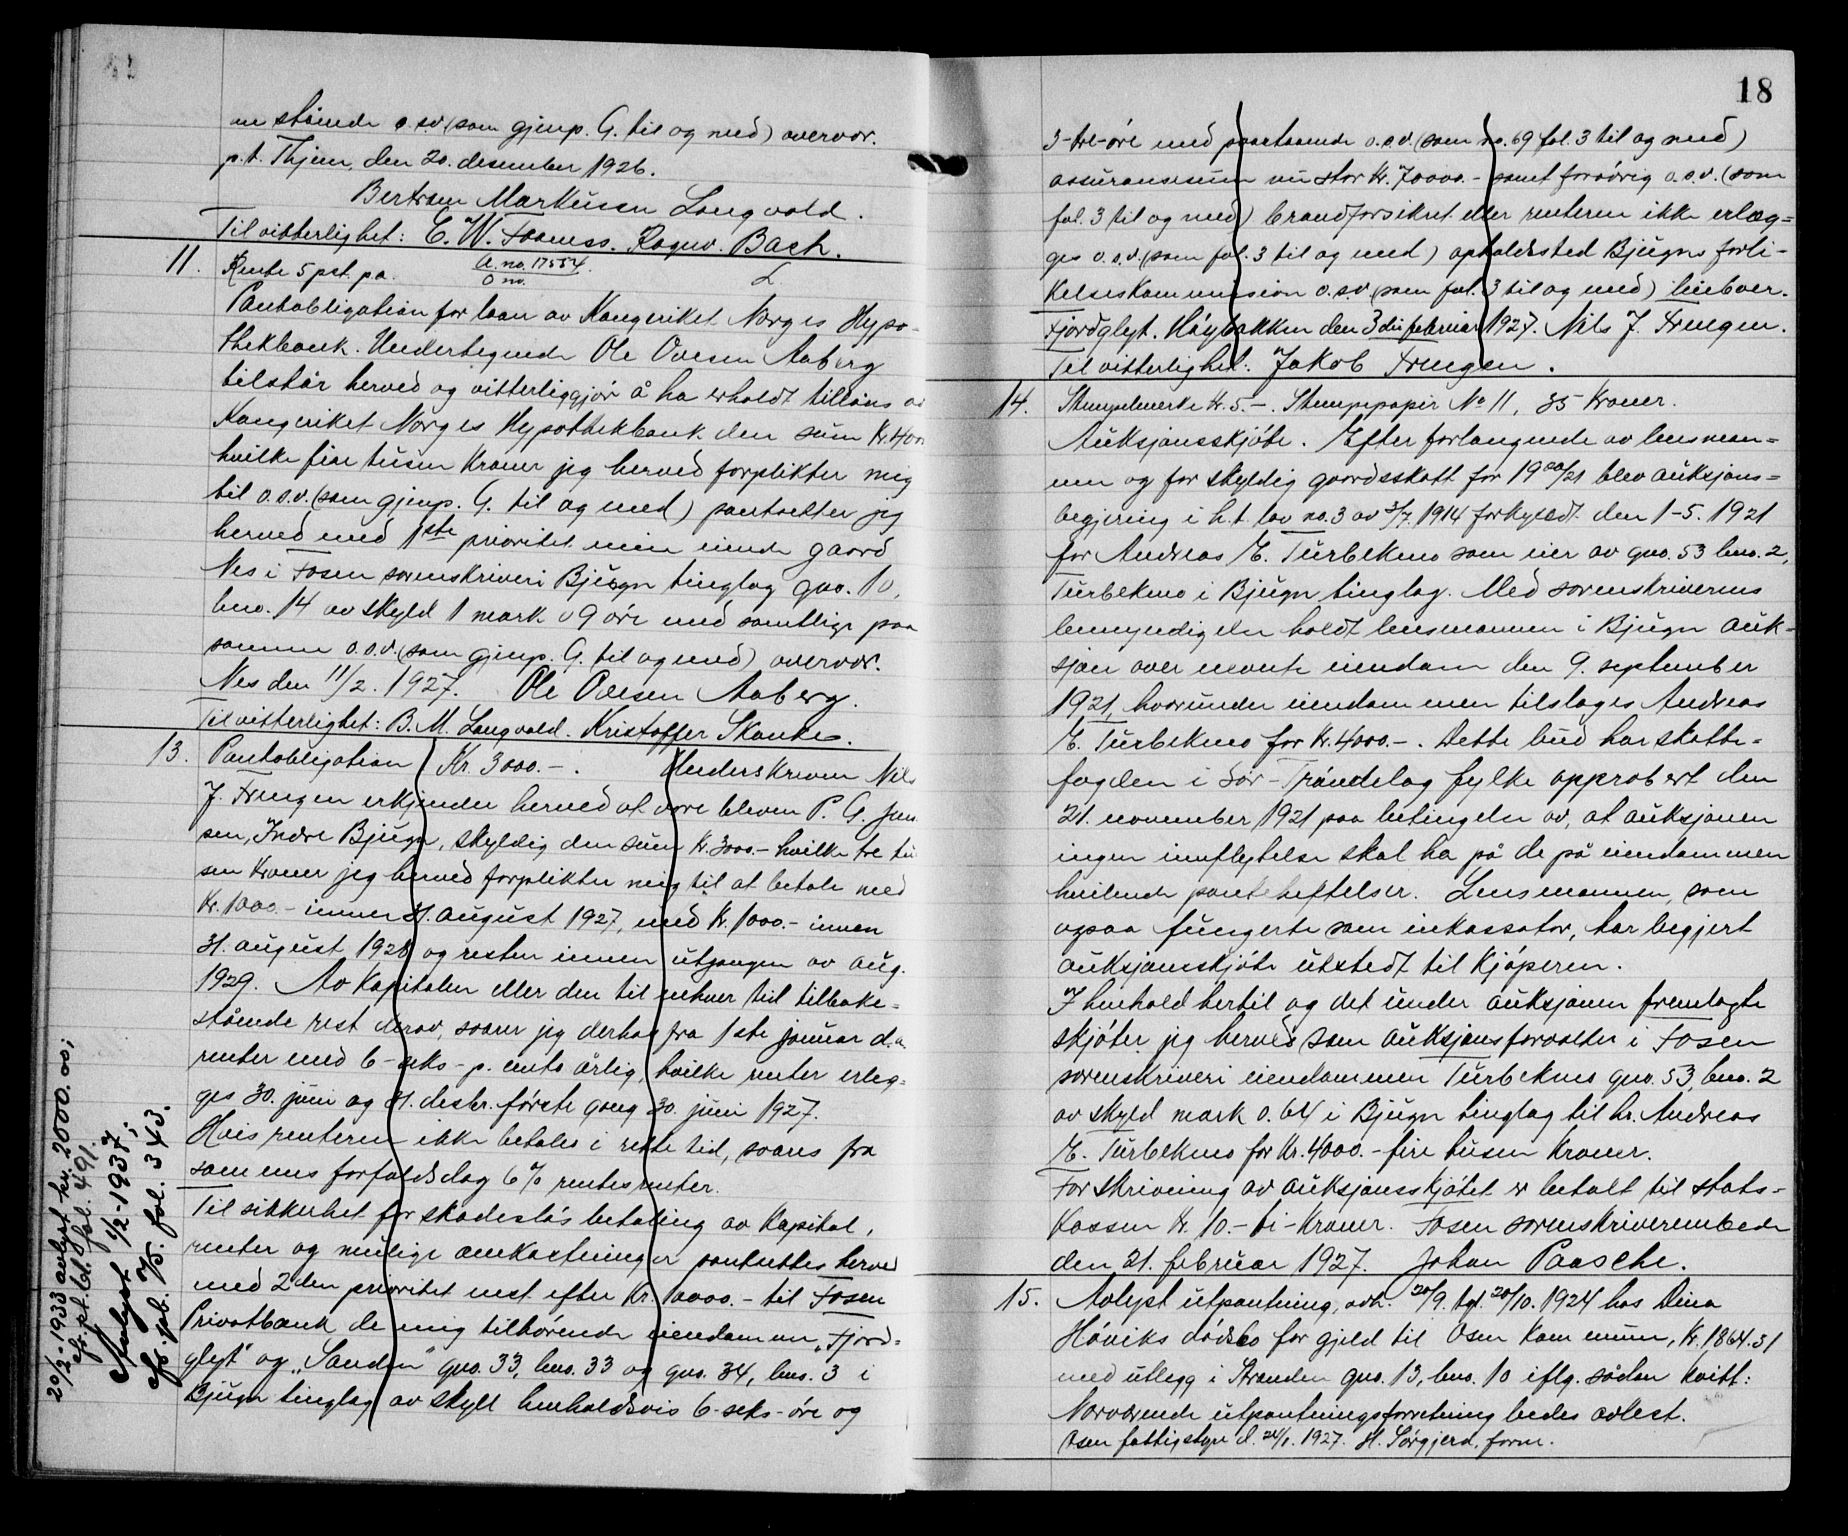 en stående o.s.v. (som gjenp. G. til og med) overvær.
p.t. Thjem, den 20. desember 1926.
Bertram Markussen Langvold.
Til vitterlighet: E. W. Fosmss. Ragnv. Bach.
11. Rente 5 pct. pa. A. no. 17554. L
O no.
Pantobligation for laan av Kongeriket Norges Hypo-
thekbank. Undertegnede Ole Ovesen Aaberg
tilstår herved og vitterliggjør å ha erholdt tillåns av
Kongeriket Norges Hypothekbank den sum Kr. 4000
hvilke fire tusen kroner jeg herved forplikter mig
til o.s.v. (som gjenp. G. til og med) pantsetter jeg
herved med 1ste prioritet min eiende gaard
Nes i Fosen sorenskriveri Bjugn tinglag gno. 10,
bno. 14 av skyld 1 mark 09 øre med samtlige paa
samme o.s.v. (som gjenp. G. til og med) overvær.
Nes den 11/2. 1927. Ole Ovesen Aaberg.
Til vitterlighet: B. M. Langvold. Kristoffer Skanke.
13. Pantobligation Kr. 3000.-. Underskreven Nils
J. Frengen erkjender herved at være bleven P. G. Jen
sen, Indre Bjugn, skyldig den sum Kr. 3000.- hvilke tre tu
sen kroner jeg herved forplikter mig til at betale med
Kr. 1000.- innen 31. august 1927, med Kr. 1000.- innen
31. august 1928 og resten innen utgangen av aug.
1929. Av kapitalen eller den til enhver tid tilbake-
stående rest derav, svarer jeg derhos fra 1ste januar d.a.
renter med 6-seks-p.cents årlig, hvilke renter erleg-
ges 30. juni og 31. desbr. første gang 30. juni 1927.
Hvis renterne ikke betales i rette tid, svares fra
sammes forfaldsdag 6% rentesrenter.
Til sikkerhet for skadesløs betaling av kapital,
renter og mulige omkostninger pantsettes herved
med 2den prioritet nest efter Kr. 10000.- til Fosen
Privatbank de mig tilhørende eiendommen „Fjord-
gløt" og „Sanden" gno. 33, bno. 33 og gno. 34, bno. 3 i
Bjugn tinglag av skyld henholdsvis 6-seks-øre og
20/2-1933 avlyst kr. 2000.00;
cfr. pt. bl. 8 fol. 491.
Avlyst 1/2-1937;
cfr. pb. 15. fol. 343.
18
3-tre-øre med paastaaende o.s.v. (som no. 69 fol. 3 til og med)
assuransesum nu stor Kr. 70000.- samt forøvrig o.s.v. (som
fol. 3 til og med) brandforsikret eller renterne ikke erlæg-
ges o.s.v. (som fol. 3 til og med) opholdssted Bjugns forli-
kelseskommission o.s.v. (som fol. 3 til og med) innbær.
Fjordgløt. Høybakken den 3die februar 1927. Nils J. Frengen.
Til vitterlighet: Jakob Frengen.
14. Stempelmerke Kr. 5.-. Stempelpapir No 11, 35 Kroner.
Auksjonsskjøte. Efter forlangende av lensman-
nen og for skyldig gaardsskatt for 1920/21 blev auksjons-
begjering i h.t. lov no. 3 av 3/7. 1914 forkyndt den 1-5. 1921
for Andreas E. Turbekmo som eier av gno. 53 bno. 2,
Turbekmo i Bjugn tinglag. Med sorenskriverens
bemyndigelse holdt lensmannen i Bjugn auk-
sjon over nevnte eiendom den 9. september
1921, hvorunder eiendommen tilslages Andreas
E. Turbekmo for Kr. 4000.-. Dette bud har skatte-
fogden i Sør-Trøndelag fylke approbert den
21. november 1921 paa betingelse av, at auksjonen
ingen innflytelse skal ha på de på eiendommen
hvilende pantehefteIser. Lensmannen, som
ogsaa fungerte som inkassator, har begjert
auksjonsskjøte utstedt til kjøperen.
I henhold hertil og det under auksjonen fremlagte
skjøter jeg herved som auksjonsforvalter i Fosen
sorenskriveri eiendommen Turbekmo gno. 53, bno. 2
av skyld mark 0.64 i Bjugn tinglag til hr. Andreas
E. Turbekmo for Kr. 4000.- fire tusen kroner.
For skrivning av auksjonsskjøtet er betalt til stats-
kassen Kr. 10.- ti-Kroner. Fosen sorenskriverembede
den 21. februar 1927. Johan Paasche.
15. Avlyst utpantning, avh. 20/9. tgl. 20/10. 1924 hos Dina
Høviks dødsbo for gjeld til Osen kommune, Kr. 1864.31
med utlegg i Stranden gno. 13, bno. 10 iflg. sådan kvitt:
Nærværende utpantningsforretning bedes avlest.
Osen fattigstyre d. 24/1. 1927. H. Sørgjerd, form.